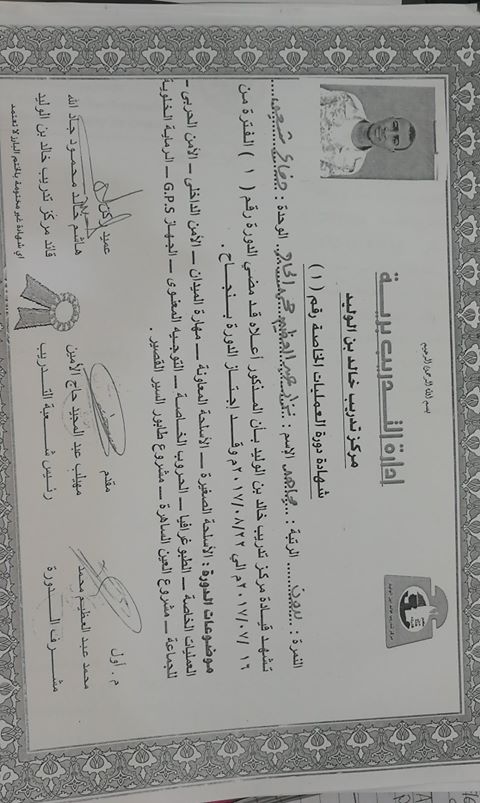 بسم الله الرحمن الرحيم
إدارة التدريب برية
مركز تدريب خالد بن الوليد
مركز تدريب خالد ابن الوليد
شهادة دورة العمليات الخاصة رقم (١)
النمرة : بدون الرتبة : مجاهد الإسم : نزار عبد العظيم الوحدة : دفاع شعبي
تشهد قيادة مركز تدريب خالد بن الوليد بأن المذكور أعلاه قد مضي الدورة رقم ( ١ ) الفترة من
١٦ /٢٠١٧/٠٧م الي ٢٠١٧/٠٨/٢٢م وقد إجتاز الدورة بنجاح .
موضوعات الدورة : الأسلحة الصغيرة – الأسلحة المعاونة – مهارة الميدان – الأمن الداخلى – الأمن الحربى –
العمليات الخاصة – الطبوغرافيا – الحروب الخاصة – التوجيه المعنوى – الجهاز G.P.S – الرماية الخلوية
للجماعة – مشروع العين الساهرة – مشروع طابور السير القصير .
م . أول
محمد عبد العظيم محمد
مشرف الدورة
مقدم
مهيلب عبد المجيد حاج الأمين
رئيس شعبة التدريب
عميد ركن
هاشم خالد محمود جاد الله
قائد مركز تدريب خالد بن الوليد
اي شهادة غير مختومة بالختم البارز لا تعتمد